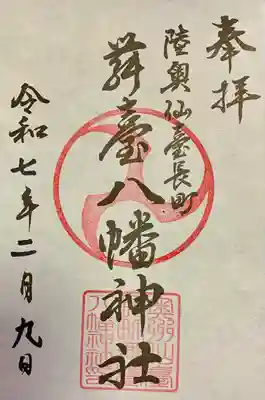 奉拝
陸奥仙臺長町
舞臺八幡神社
令和七年二月九日